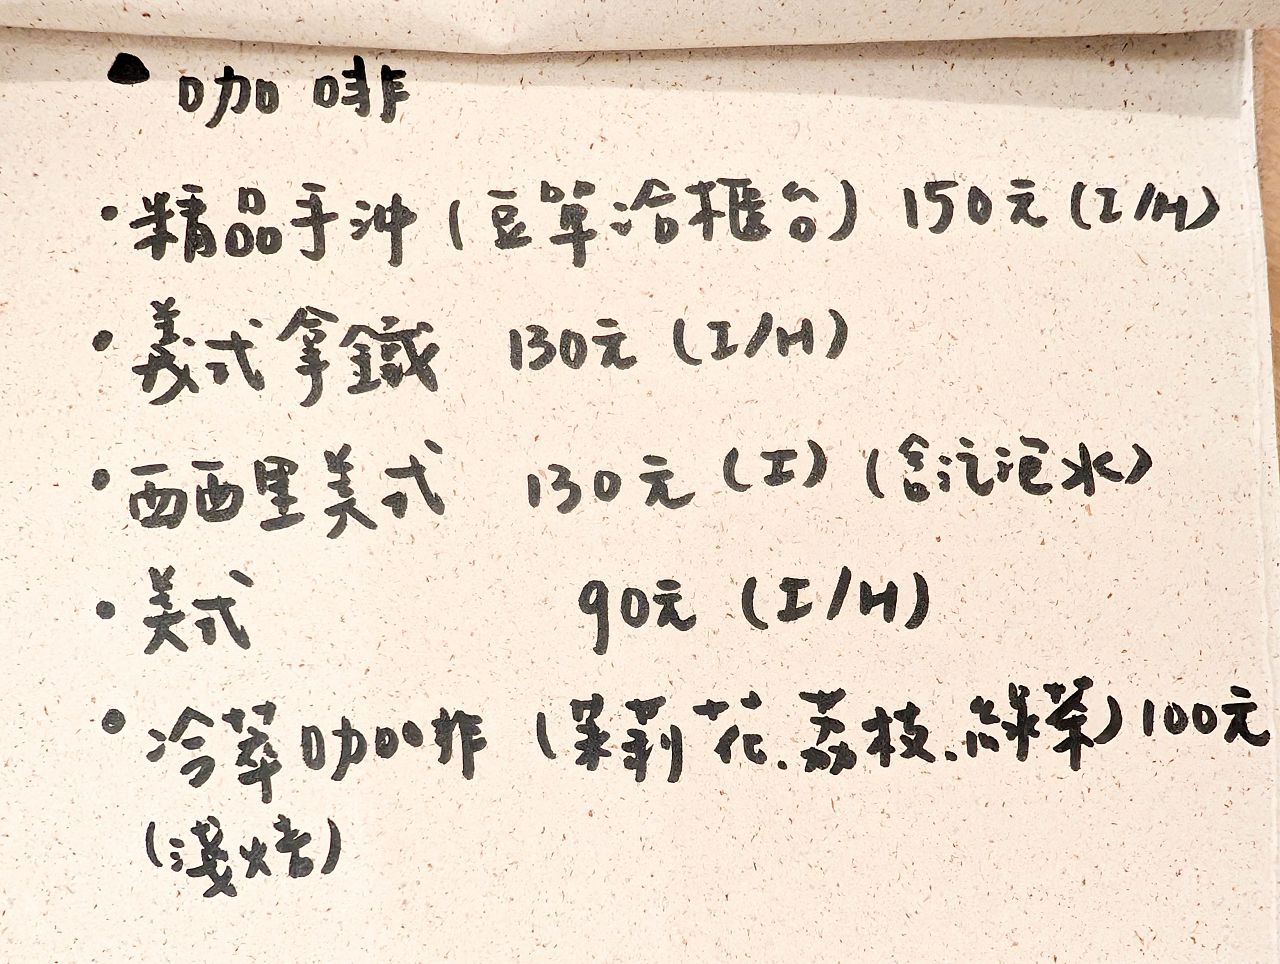 ● 咖啡
· 精品手沖(豆單洽櫃台) 150元(I/H)
· 義式拿鐵 130元(I/H)
· 西西里美式 130元(I)(含汽泡水)
· 美式 90元(I/H)
· 冷萃咖啡(茉莉花.荔枝.綠茶)100元
(淺焙)